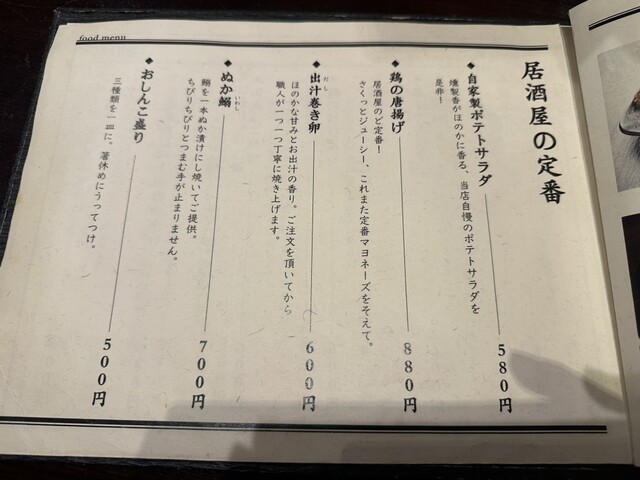 food menu
居酒屋の定番
◆自家製ポテトサラダ 580円
燻製香がほのかに香る、当店自慢のポテトサラダを
是非！
◆鶏の唐揚げ 880円
居酒屋のど定番！
さくっとジューシー、これまた定番マヨネーズをそえて。
◆出汁巻き卵 600円
だし
ほのかな甘みとお出汁の香り。ご注文を頂いてから
職人が一つ一つ丁寧に焼き上げます。
◆ぬか鰯 700円
いわし
鰯を一本ぬか漬けにし焼いてご提供。
ちびりちびりとつまむ手が止まりません。
◆おしんこ盛り 500円
三種類を一皿に。箸休めにうってつけ。